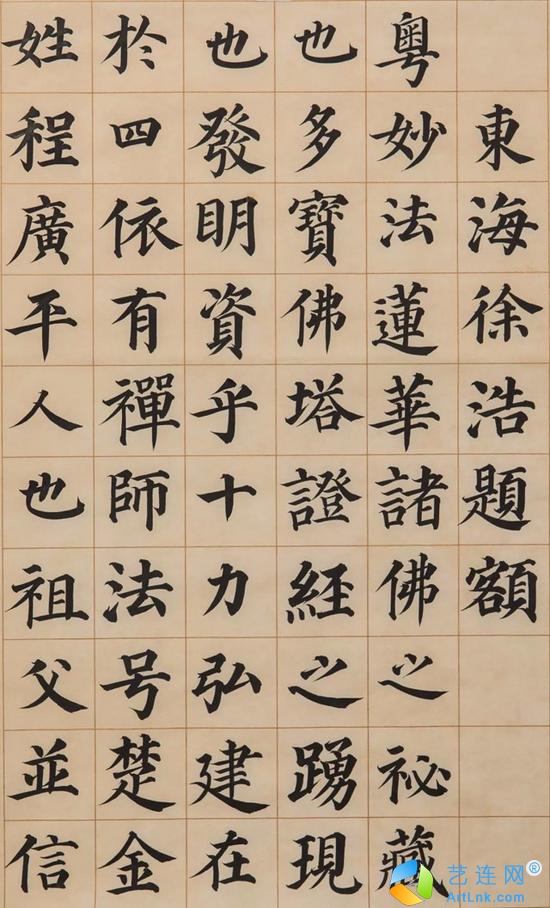 東海徐浩題額
粵妙法蓮華諸佛之祕藏
也多寶佛塔證經之踴現
也發明資乎十力弘建在
於四依有禪師法号楚金
姓程廣平人也祖父並信
艺连网®
ArtLnk.com